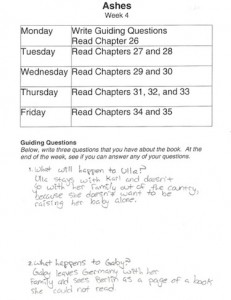 Ashes
Week 4
Monday Write Guiding Questions
Read Chapter 26
Tuesday Read Chapters 27 and 28
Wednesday Read Chapters 29 and 30
Thursday Read Chapters 31, 32, and 33
Friday Read Chapters 34 and 35
Guiding Questions
Below, write three questions that you have about the book. At the
end of the week, see if you can answer any of your questions.
1. What will happen to Ulla?
Ulla stays with Karl and doesn't
go with her family out of the country
because she doesn't want to be
raising her baby alone.
2. What happens to Gaby?
Gaby leaves Germany with her
family and sees Berlin as a page of a book
she could not read